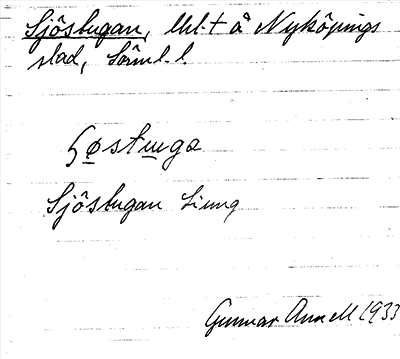 Sjöstugan, lht. t å Nyköpings
stad, Sörml. l.
ɧøstuga
Sjöstugan
Gunnar Annell 1933